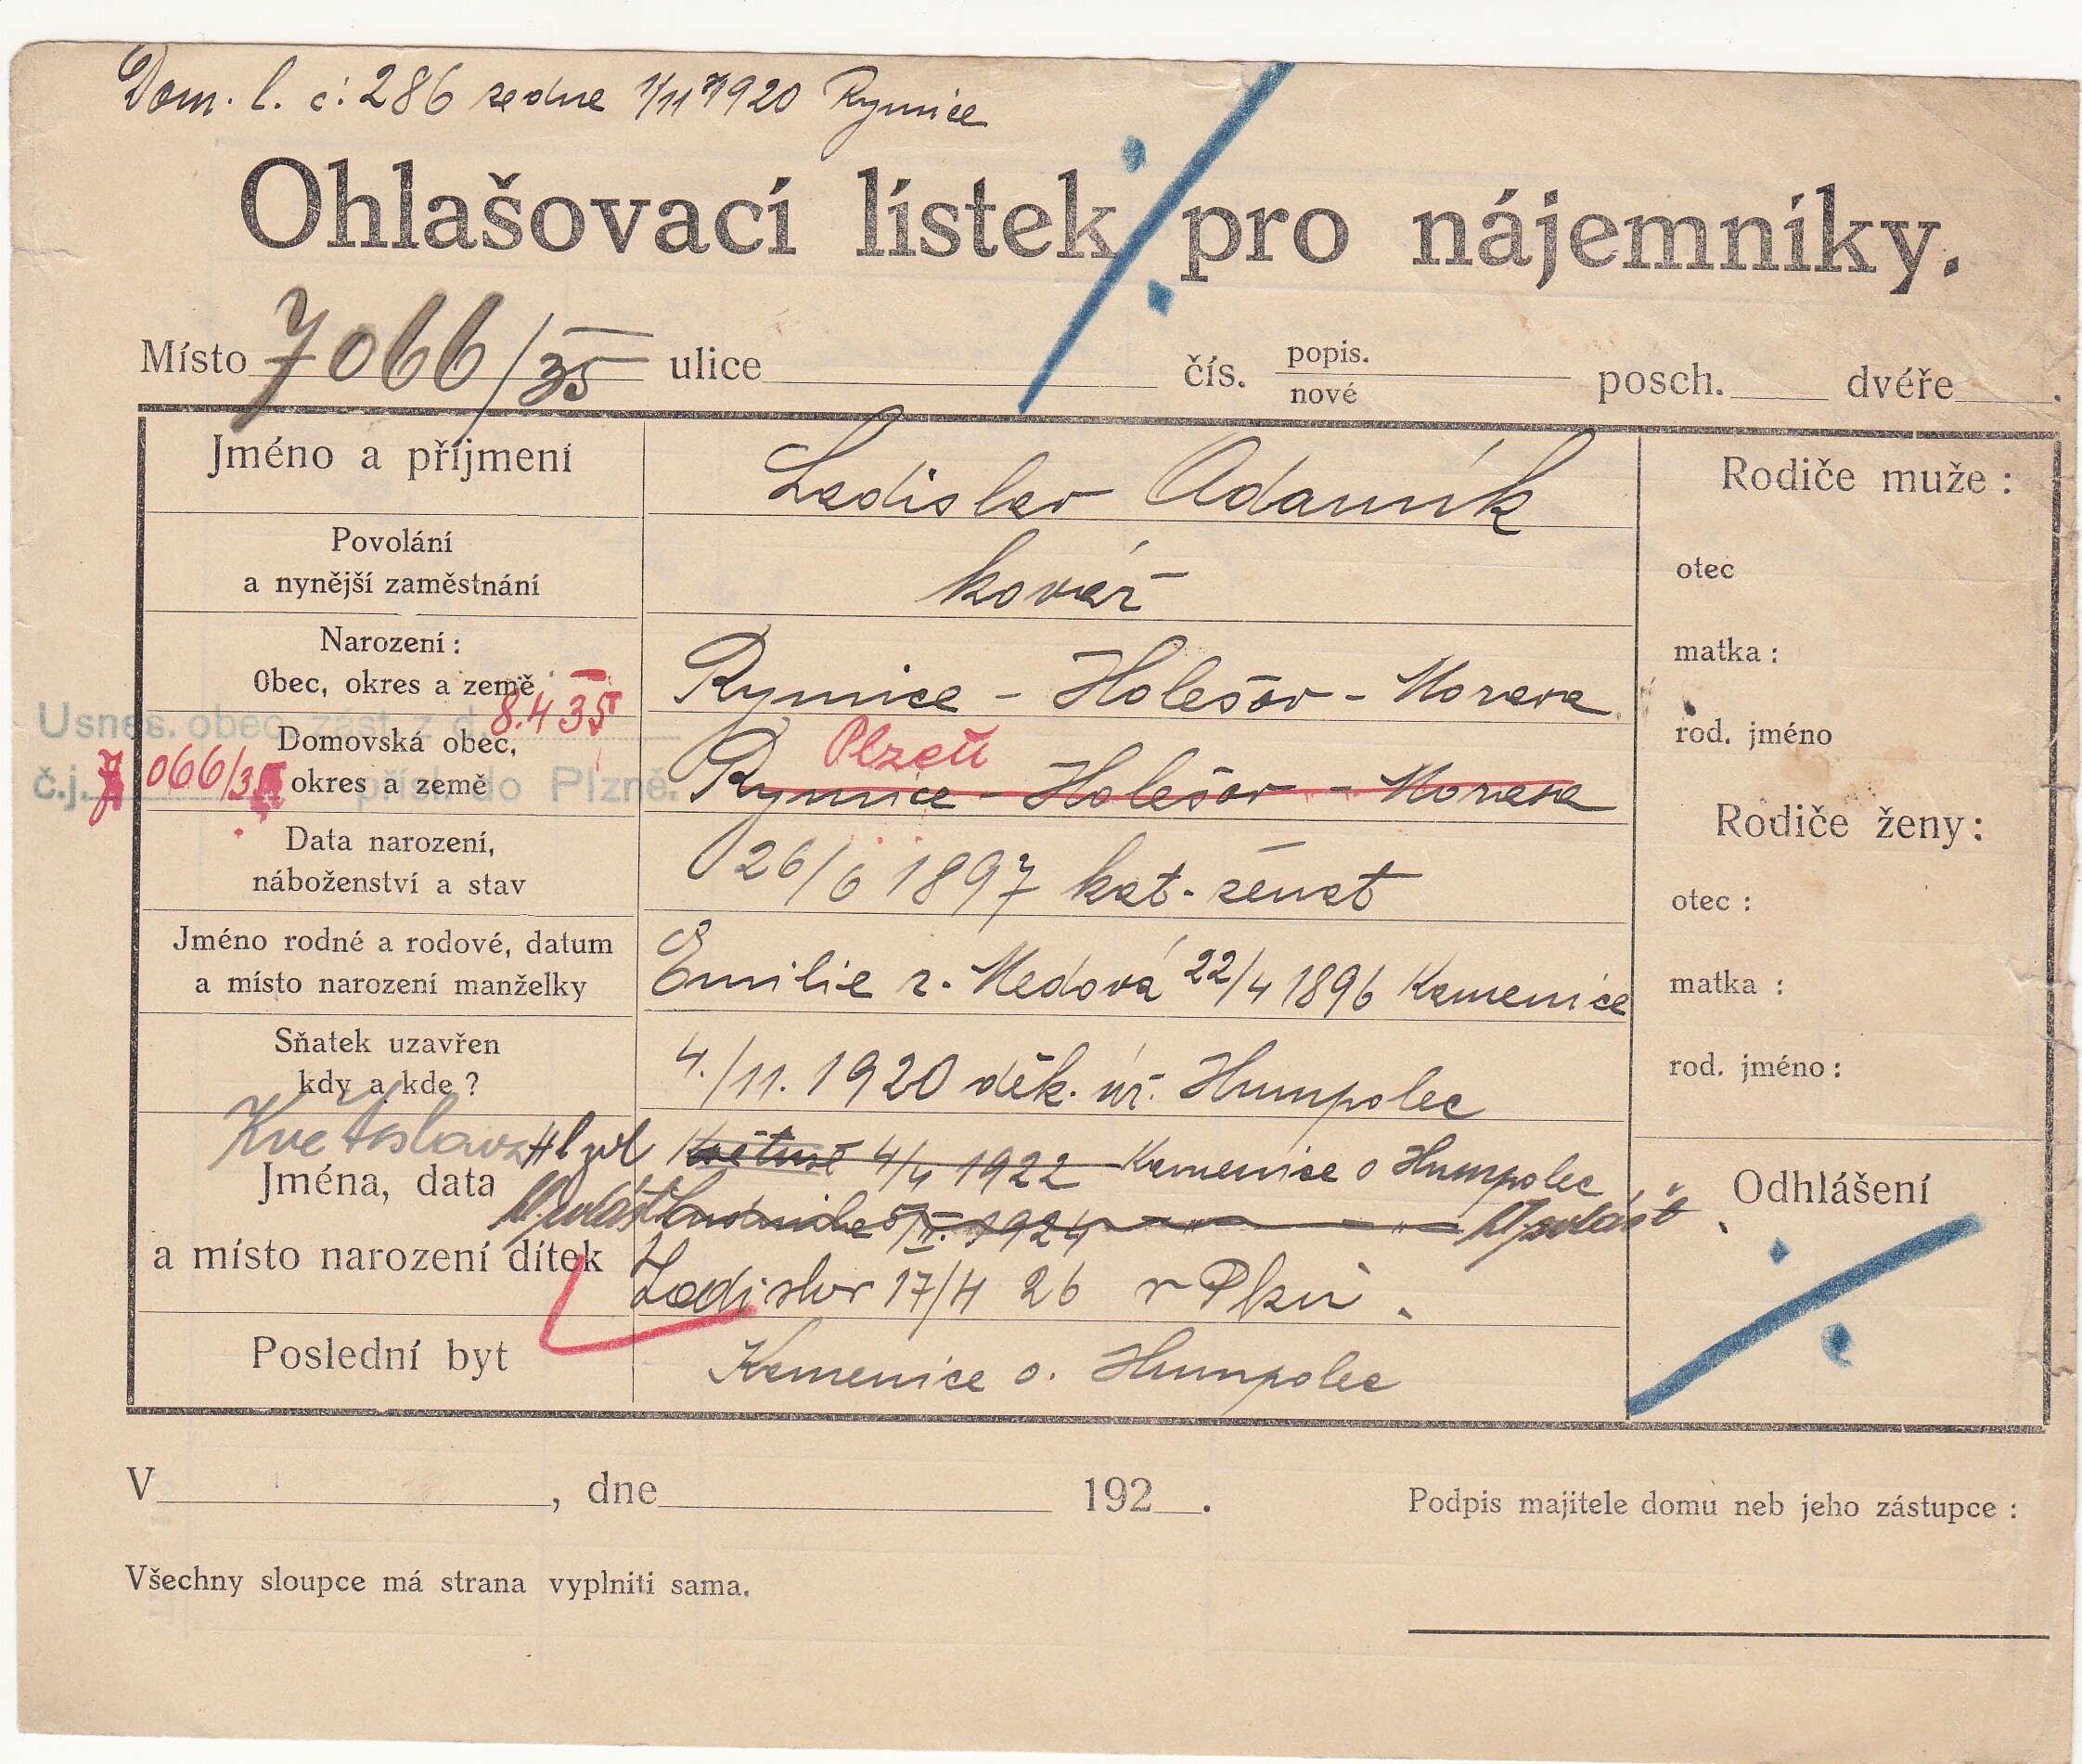 Dom. l. č: 286 ze dne 1/11 1920 Rymice
Ohlašovací lístek pro nájemníky.
Místo 7066/35 ulice čís. popis. nové posch. dvéře .
Jméno a příjmení Ladislav Adamík Rodiče muže :
Povolání a nynější zaměstnání kovář otec
Narození : Obec, okres a země Rymice - Holešov - Morava matka :
Usnes. obec. zást. z d. 8.4 35
Domovská obec, okres a země Plzeň rod. jméno
č.j. 7066/35 přísl. do Plzně.
Rymice - Holešov - Morava
Rodiče ženy :
Data narození, náboženství a stav 26/6 1897 kat. ženat
otec :
Jméno rodné a rodové, datum a místo narození manželky Emilie r. Medová 22/4 1896 Kamenice matka :
Sňatek uzavřen kdy a kde ? 4./11. 1920 děk. úř. Humpolec rod. jméno :
Květoslava Hl zvl 4/4 1922 Kamenice o Humpolec
Jména, data a místo narození dítek
5/II. 1924 - " - " -
Ladislav 17/4 26 v Plzni.
Odhlášení
Poslední byt Kamenice o. Humpolec
V , dne 192 . Podpis majitele domu neb jeho zástupce :
Všechny sloupce má strana vyplniti sama.